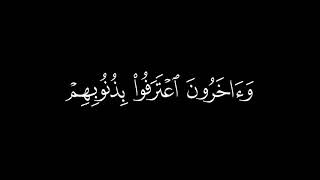 وَءَاخَرُونَ ٱعْتَرَفُوا۟ بِذُنُوبِهِمْ